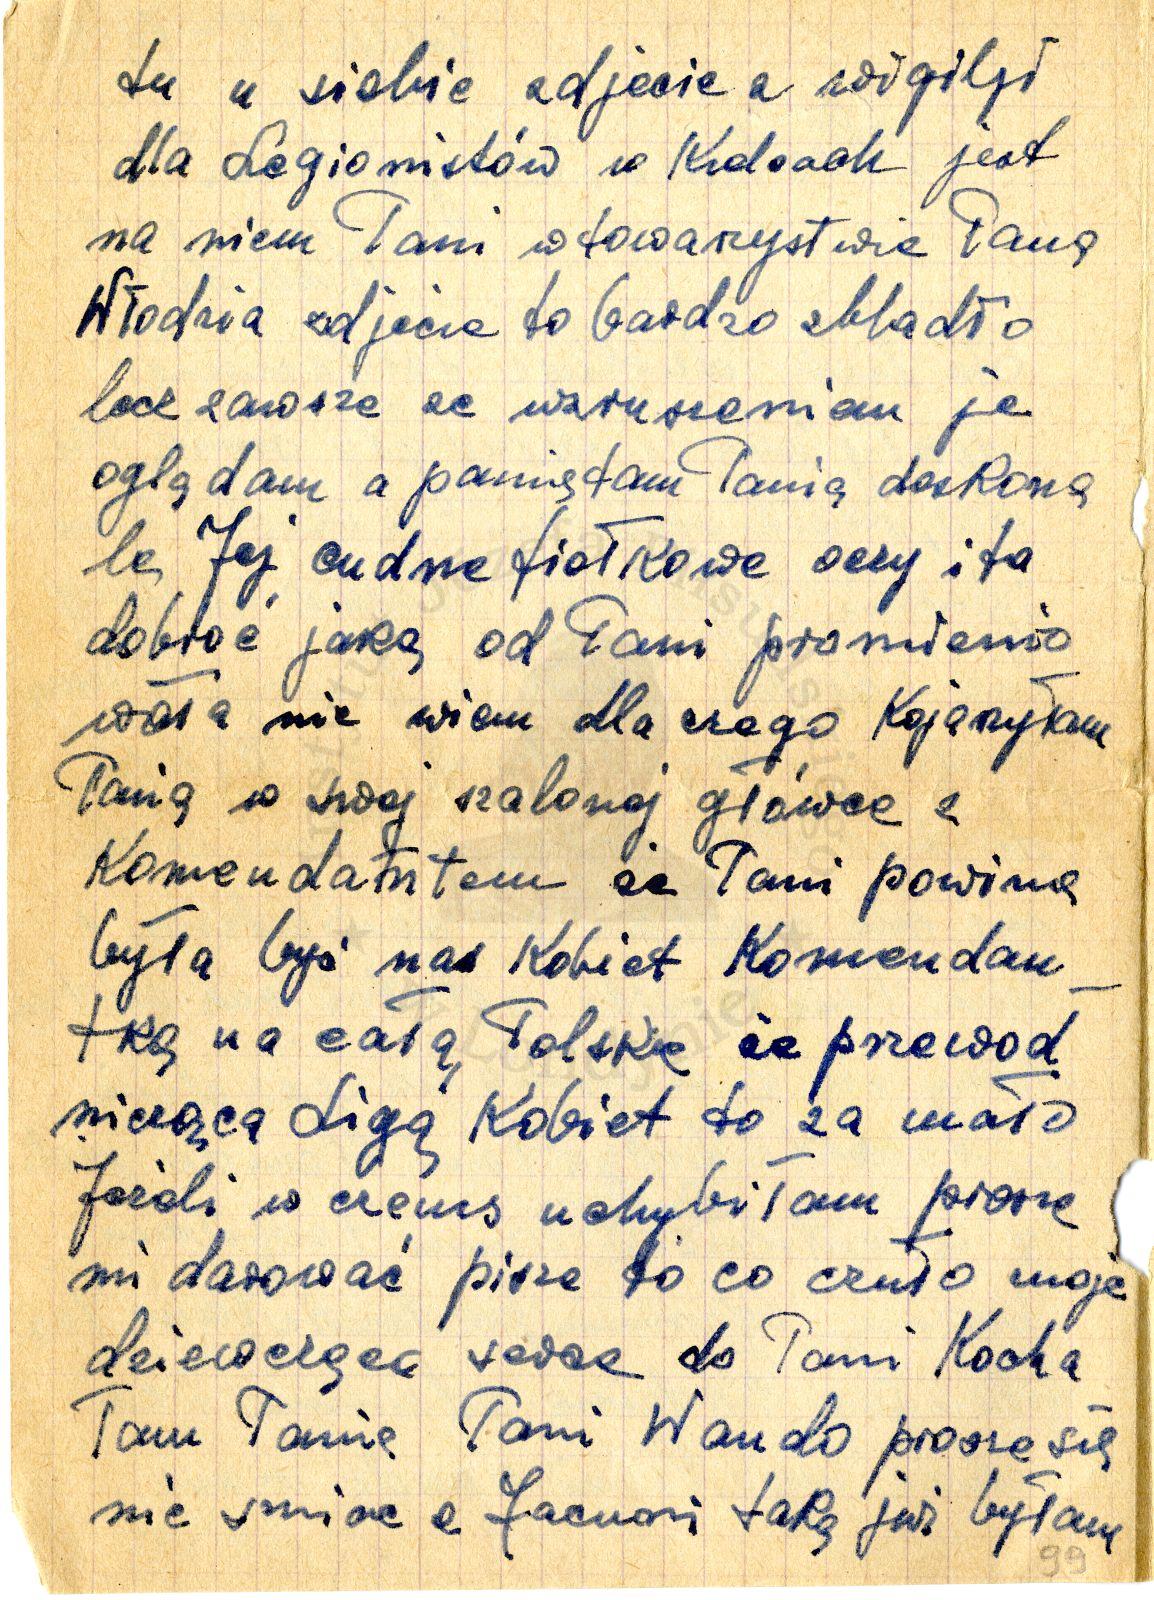 tu u siebie zdjęcie z wigilji
dla Legionistów w Kielcach jest
na niem Pani w towarzystwie Pana
Włodzia zdjęcie to bardzo zbladło
lecz zawsze ze wzruszeniem je
oglądam a pamiętam Panią doskona
le, Jej cudne fiołkowe oczy i ta
dobroć jaką od Pani promienio
wała nie wiem dla czego kojarzyłam
Panią w swej szalonej główce z
Komendantem że Pani powina
była być nas Kobiet Komendan_
tką na całą Polskę że przewod
nicząca Ligą Kobiet to za mało
Jeżeli w czemś uchybiłam proszę
mi darować piszę to co czuło moje
dziewczęce serce do Pani Kocha
łam Panię Pani Wando proszę się
nie śmiać z Jacuni taką już byłam
99